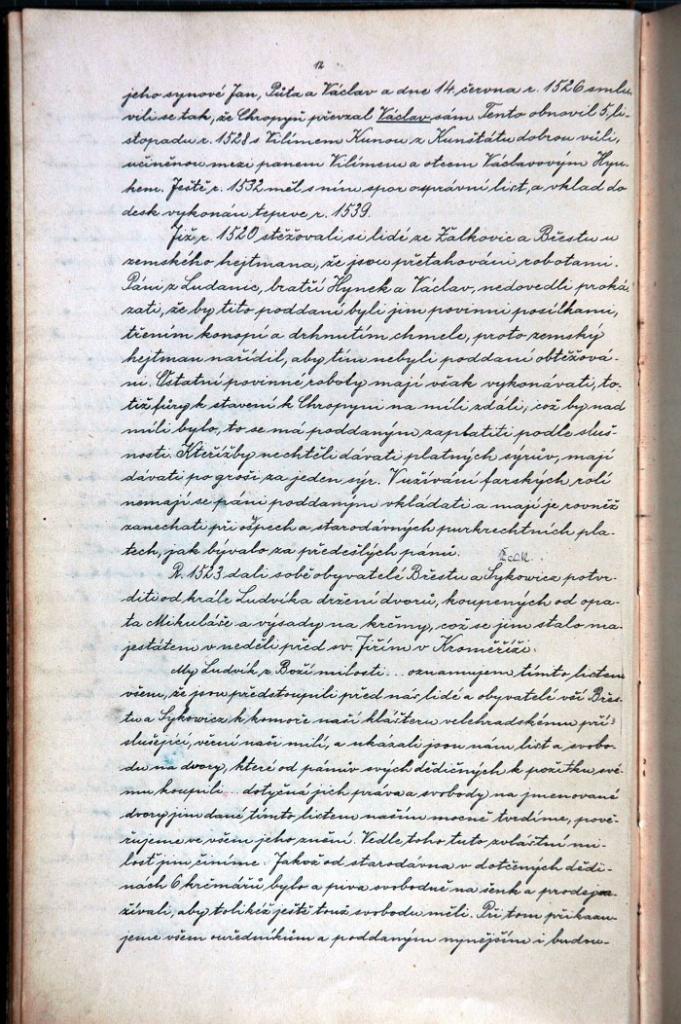 12
jeho synové Jan, Půta a Václav a dne 14. června r. 1526 smlu-
vili se tak, že Chropyň převzal Václav sám. Tento obnovil 5. li-
stopadu r. 1528 s Vilímem Kunou z Kunštátu dobrou vůli,
učiněnou mezi panem Vilímem a otcem Václavovým Hyn-
kem. Ještě r. 1532 měl s ním spor o správní list, a vklad do
desk vykonán teprve r. 1539.
Již r. 1520 stěžovali si lidé ze Žalkovic a Břestu u
zemského hejtmana, že jsou přetahováni robotami.
Páni z Ludanic, bratří Hynek a Václav, nedovedli proká-
zati, že by tito poddaní byli jim povinni posílkami,
třením konopí a drhnutím chmele, proto zemský
hejtman nařídil, aby tím nebyli poddaní obtěžová-
ni. Ostatní povinné roboty mají však vykonávati, to-
tiž fůry k stavení k Chropyni na míli zdáli, což by nad
míli bylo, to se má poddaným zaplatiti podle sluš-
nosti. Kteřížby nechtěli dávati platných sýrův, mají
dávati po groši za jeden sýr. V užívání farských rolí
nemají se páni poddaným vkládati a mají je rovněž
zanechati při ošpech a starodávných purkrechtních pla-
tech, jak bývalo za předešlých pánů.
R. 1523 dali sobě obyvatelé Břestu a Sykowicz potvr-
diti od krále Ludvíka držení dvorů, koupených od opa-
ta Mikuláše a výsady na krčmy, což se jim stalo ma-
jestátem v neděli před sv. Jiřím v Kroměříži.
My Ludvík z Boží milosti... oznamujem tímto listem
všem, že jsou předstoupili před nás lidé a obyvatelé vsí Břes-
tu a Sykowicz k komoře naší klášteru velehradskému pří-
slušející, věrní naši milí, a ukázali jsou nám list a svobo-
du na dvory, které od pánův svých dědičných k požitku své-
mu koupili... dotyčná jich práva a svobody na jmenované
dvory jim dané tímto listem naším mocně tvrdíme, pově-
řujeme ve všem jeho znění. Vedle toho tuto zvláštní mi-
lost jim činíme: Jakož od starodávna v dotčených dědi-
nách 6 krčmářů bylo a piva svobodně na šenk a prodej
žívali, aby tolikéž ještě touž svobodu měli. Při tom přikazu-
jeme všem ouředníkům a poddaným nynějším i budou-